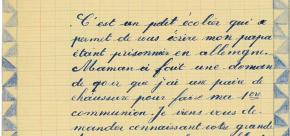 C'est un petit écolier qui se
permet de vous écrire mon papa
étant prisonnier en allemgne.
Maman a fait une deman
de que j'ai une paire de
chaussure pour faire ma 1ère
communion. Je viens vous de
mander connaissant votre grande